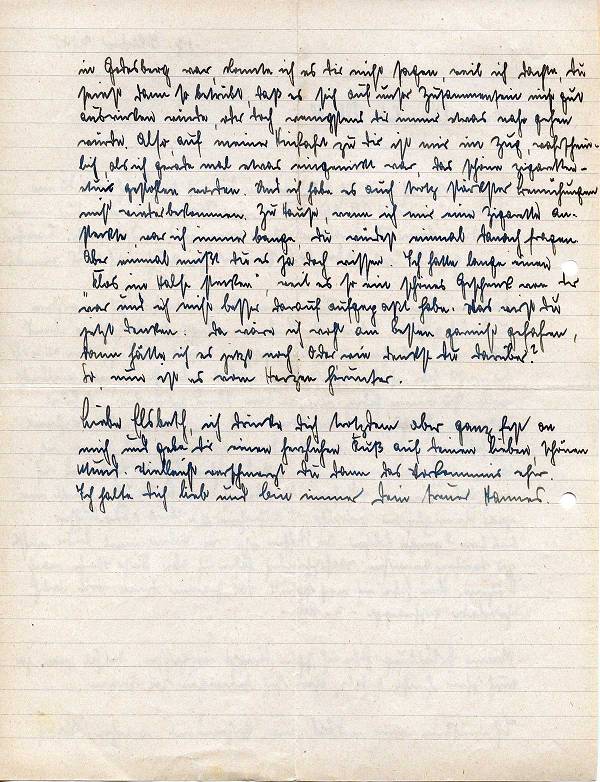 in Godesberg war, konnte ich es dir nicht sagen, weil ich dachte, du
seiest dann so betrübt, daß es sich auf unser Zusammensein nicht gut
auswirken würde, oder doch wenigstens dir immer etwas nahe gehen
würde. Also, auf meiner Hinfahrt zu dir ist mir im Zug, wahrschein-
lich, als ich gerade mal etwas eingenickt war, das schöne Zigaretten-
etuis gestohlen worden. Und ich habe es auch trotz stärkster Bemühungen
nicht wiederbekommen. Zu Hause, wenn ich mir eine Zigarette an-
steckte, war ich immer bange, du würdest einmal danach fragen.
Aber einmal mußt du es ja doch wissen. Ich hatte lange einen
"Klos im Halse stecken", weil es so ein schönes Geschenk von dir
war und ich nicht besser darauf aufgepaßt habe. Was wirst du
jetzt denken: da wäre ich wohl am besten garnicht gefahren,
dann hätte ich es jetzt noch. Oder wie denkst du darüber?
So, nun ist es vom Herzen herunter.
Liebe Elsbeth, ich drücke dich trotzdem aber ganz fest an
mich und gebe dir einen herzlichen Kuß auf deinen lieben, schönen
Mund. Vielleicht verschmerzt du dann das Vorkommnis eher.
Ich halte dich lieb und bin immer dein treuer Hannes.